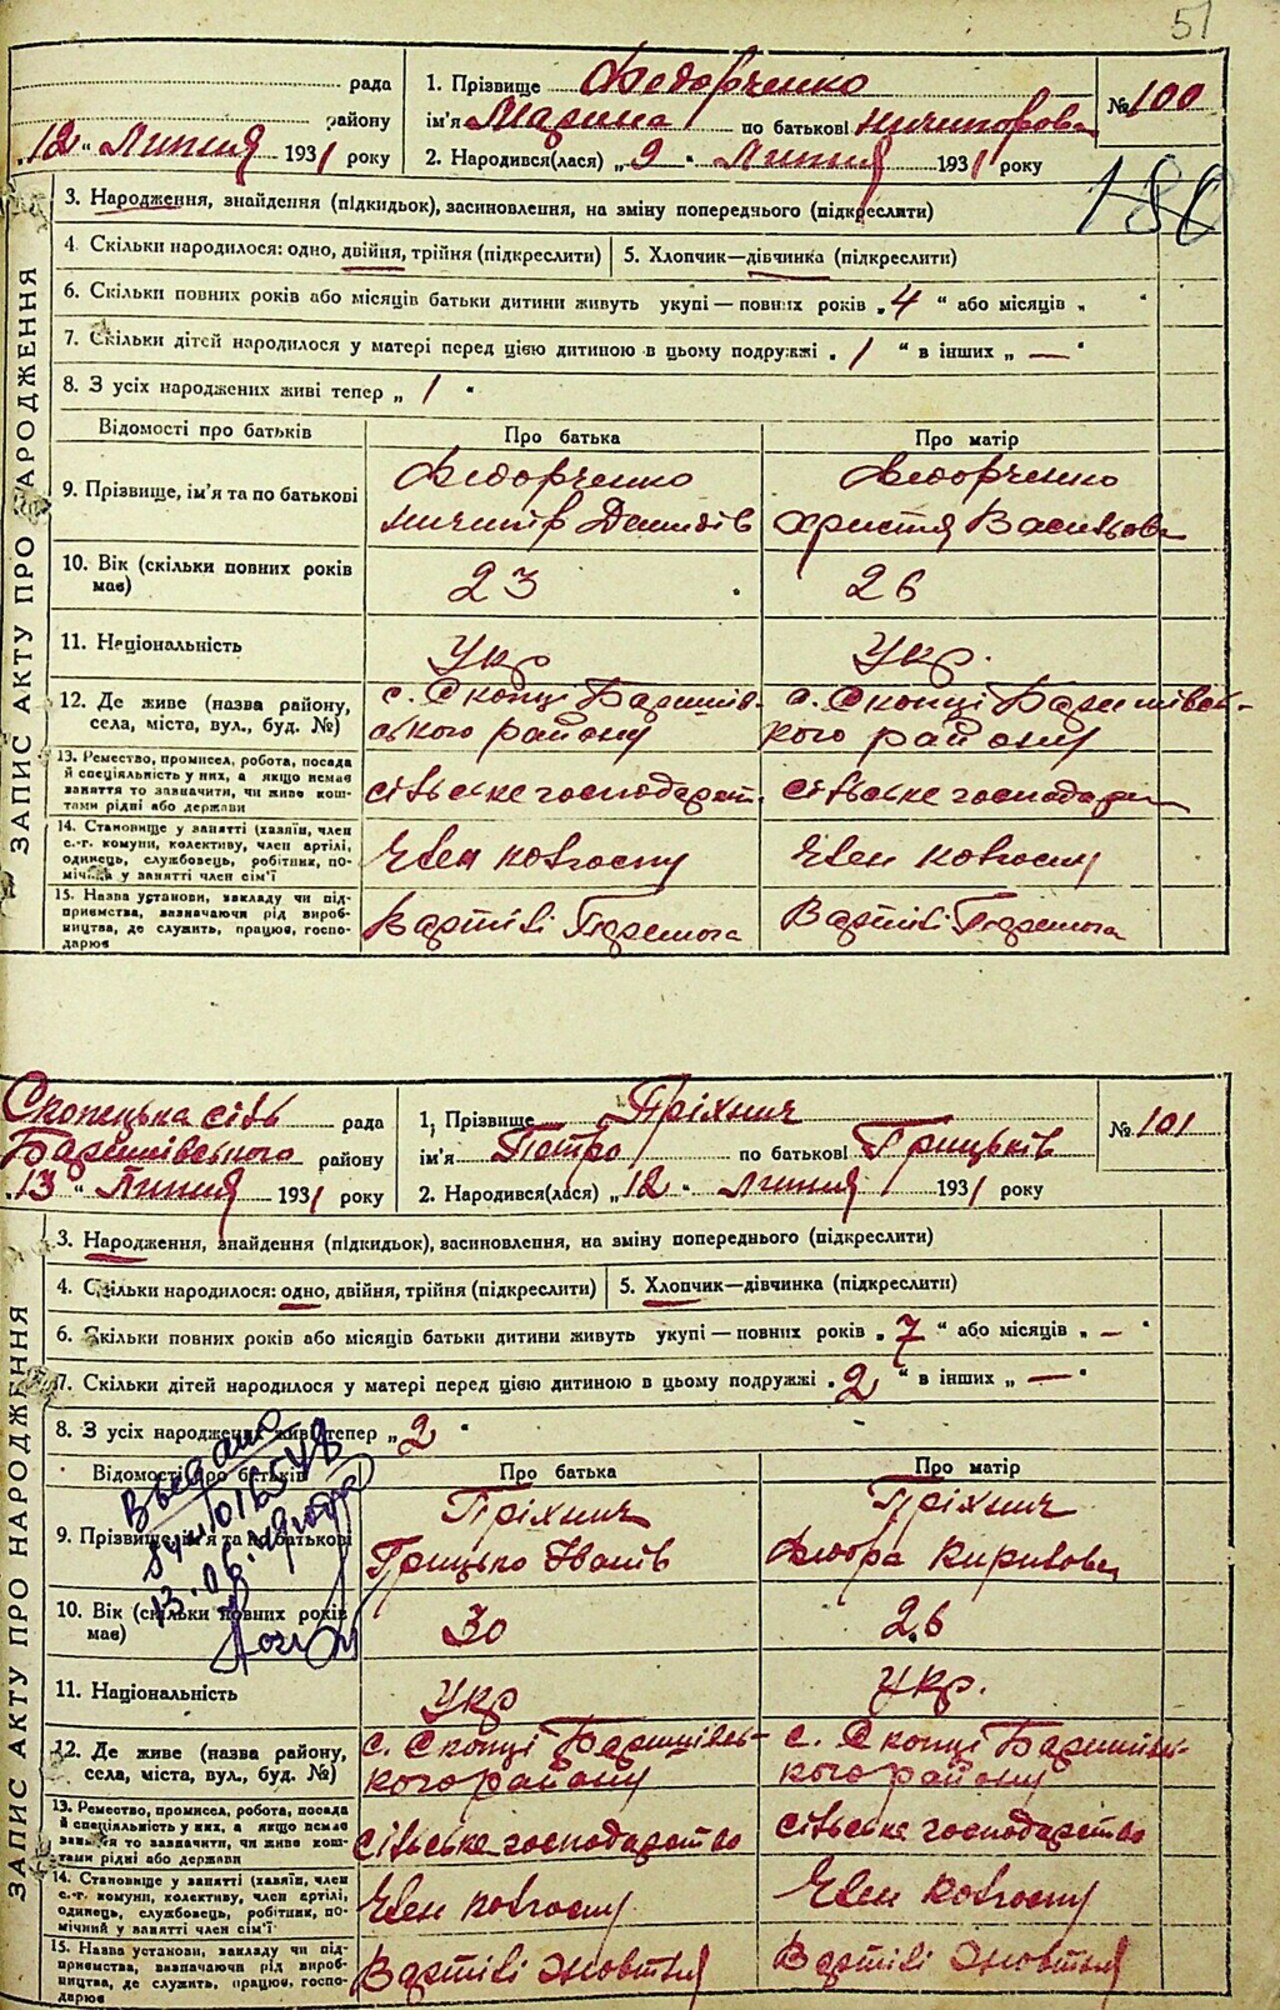 51
рада
району
"12" Липня 1931 року
1. Прізвище Федорченко
ім'я Марина по батькові Ничипорова
2. Народився(лася) „9" Липня 1931 року
№ 100
180
ЗАПИС АКТУ ПРО НАРОДЖЕННЯ
3. Народження, знайдення (підкидьок), засиновлення, на зміну попереднього (підкреслити)
4. Скільки народилося: одно, двійня, трійня (підкреслити)
5. Хлопчик—дівчинка (підкреслити)
6. Скільки повних років або місяців батьки дитини живуть укупі — повних років „4" або місяців „ "
7. Скільки дітей народилося у матері перед цією дитиною в цьому подружжі „1" в інших „—"
8. З усіх народжених живі тепер „1"
Відомості про батьків
Про батька
Про матір
9. Прізвище, ім'я та по батькові
Федорченко
Ничипір Демидів
Федорченко
Христя Васильова
10. Вік (скільки повних років
має)
23
26
11. Національність
Укр
Укр.
12. Де живе (назва району,
села, міста, вул., буд. №)
с. Скопці Баришів-
ського району
с. Скопці Баришівсь-
кого району
13. Ремество, промисел, робота, посада
й спеціяльність у них, а якщо немає
заняття то зазначити, чи живе кош-
тами рідні або держави
сільське господарст
сільське господарст
14. Становище у занятті (хазяїн, член
с.-г. комуни, колективу, член артілі,
одинець, службовець, робітник, по-
мічник у занятті член сім'ї
Член колгоспу
Член колгоспу
15. Назва установи, закладу чи під-
приємства, зазначаючи рід вироб-
ництва, де служить, працює, госпо-
дарює
В артілі Перемога
В артілі Перемога
Скопецька сіль рада
Баришівського району
"13" Липня 1931 року
1. Прізвище Пріхнич
ім'я Петро по батькові Грицьків
2. Народився(лася) „12" Липня 1931 року
№ 101
ЗАПИС АКТУ ПРО НАРОДЖЕННЯ
3. Народження, знайдення (підкидьок), засиновлення, на зміну попереднього (підкреслити)
4. Скільки народилося: одно, двійня, трійня (підкреслити)
5. Хлопчик—дівчинка (підкреслити)
6. Скільки повних років або місяців батьки дитини живуть укупі — повних років „7" або місяців „—"
7. Скільки дітей народилося у матері перед цією дитиною в цьому подружжі „2" в інших „—"
8. З усіх народжених живі тепер „2"
Відомості про батьків
Про батька
Про матір
9. Прізвище, ім'я та по батькові
Пріхнич
Грицько Іванів
Пріхнич
Федора Кирилова
10. Вік (скільки повних років
має)
30
26
11. Національність
Укр
Укр.
12. Де живе (назва району,
села, міста, вул., буд. №)
с. Скопці Баришівсь-
кого району
с. Скопці Баришівсь-
кого району
13. Ремество, промисел, робота, посада
й спеціяльність у них, а якщо немає
заняття то зазначити, чи живе кош-
тами рідні або держави
сільське господарство
сільське господарство
14. Становище у занятті (хазяїн, член
с.-г. комуни, колективу, член артілі,
одинець, службовець, робітник, по-
мічний у занятті член сім'ї
Член колгоспу
Член колгоспу
15. Назва установи, закладу чи під-
приємства, зазначаючи рід вироб-
ництва, де служить, працює, госпо-
дарює
В артілі Жовтня
В артілі Жовтня